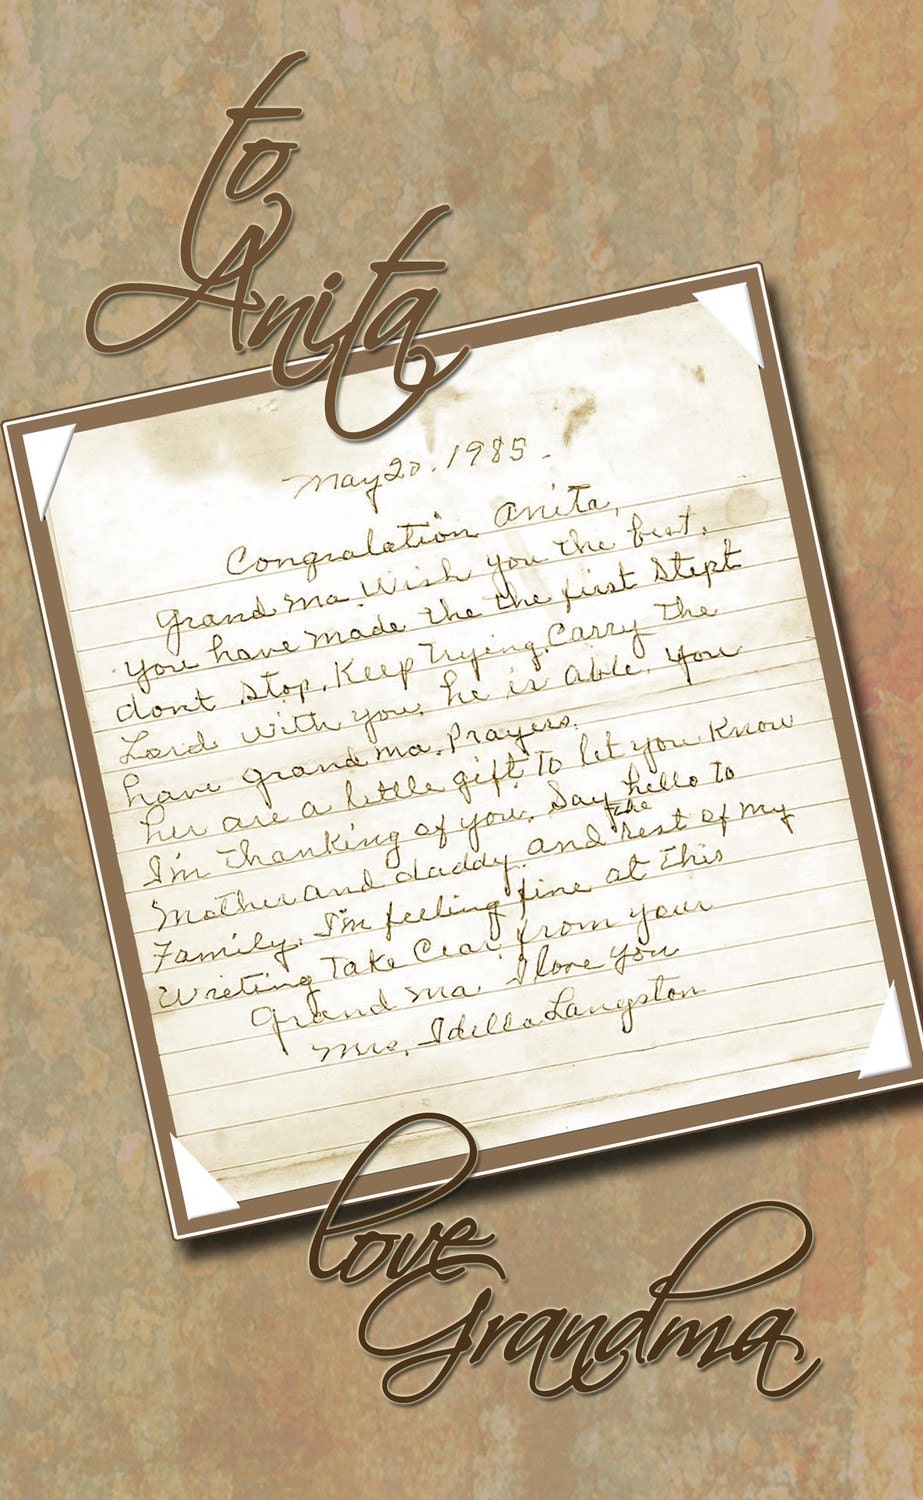 to
Anita
May 20. 1985.
Congralation Anita,
Grand Ma Wish you the best.
you have made the the first Stept
dont Stop. Keep Trying. Carry The
Lord with you, he is able. you
have grand ma. Prayers.
her are a little gift To let you Know
I'm Thanking of you. Say hello to
Mother and daddy. and the rest of my
Family. I'm feeling fine at This
Writing Take Cear from your
Grand Ma I love you
Mrs. Idella Langston
love
Grandma